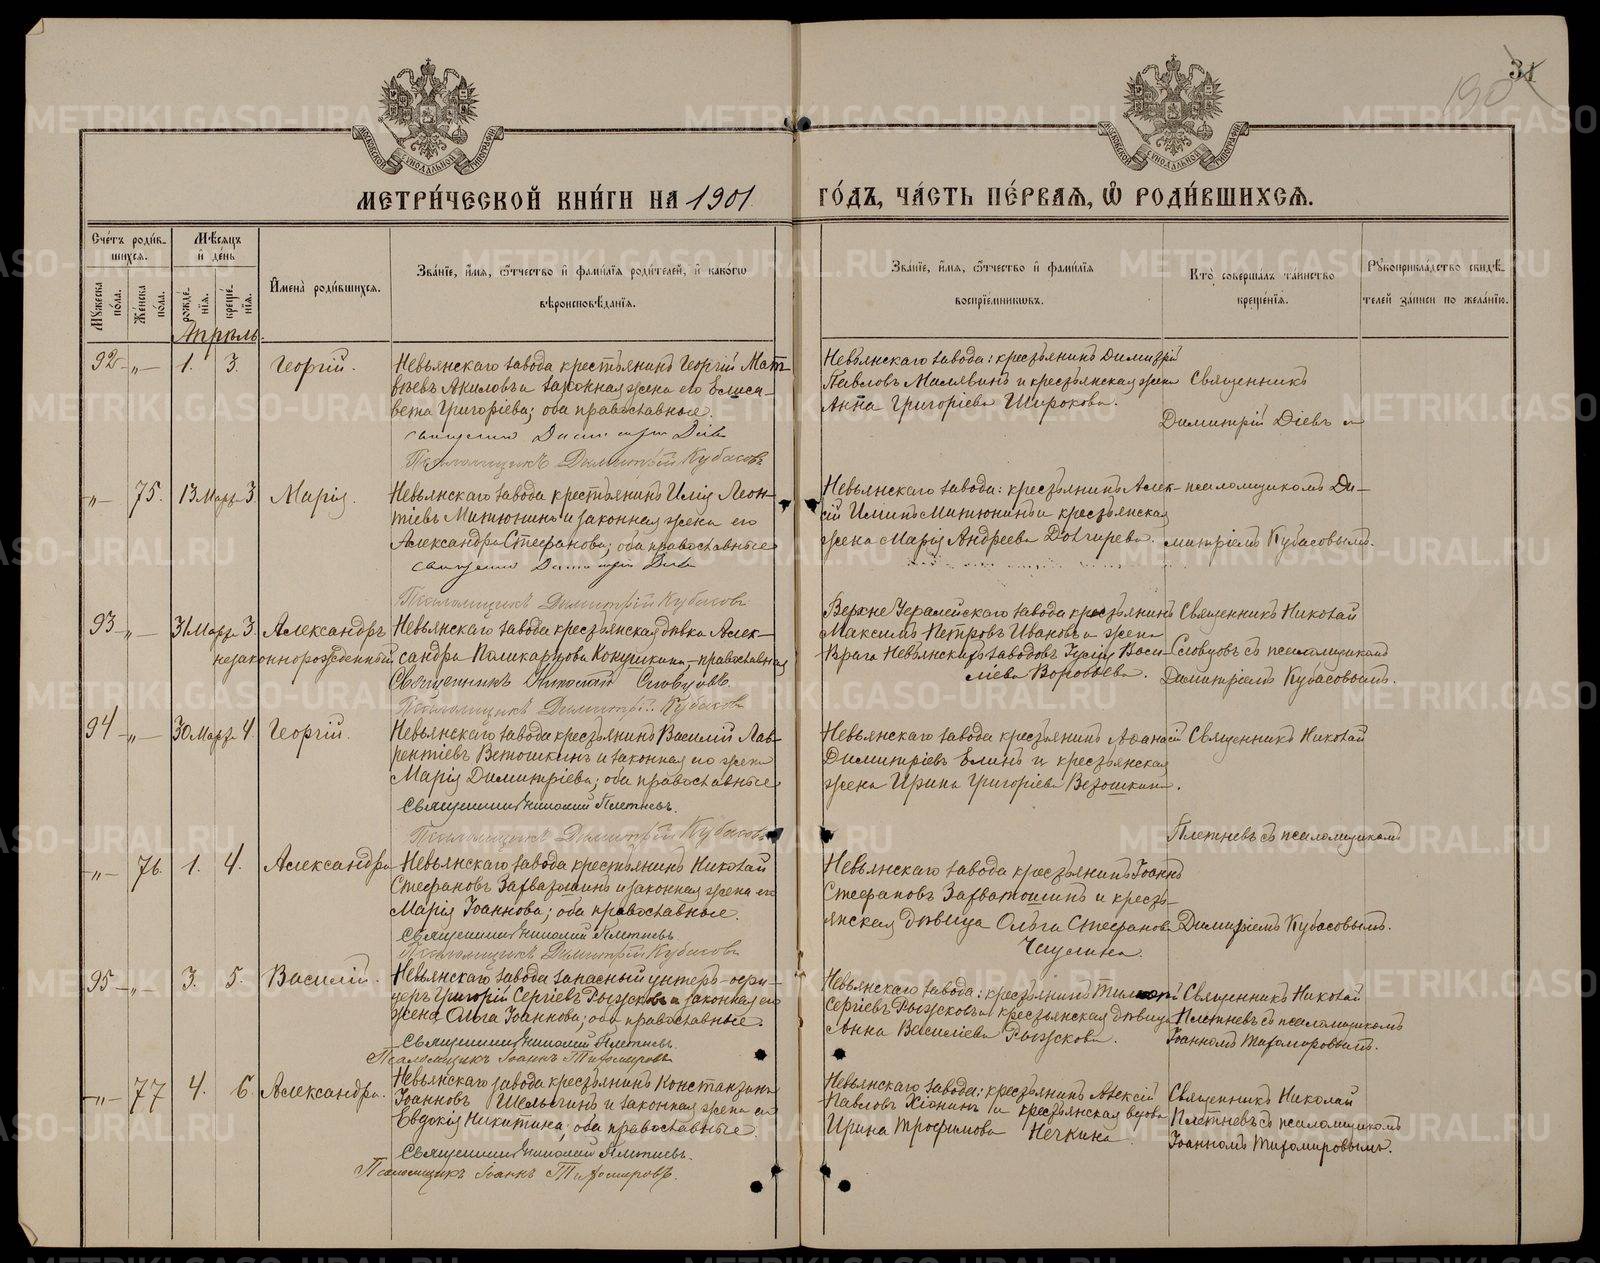 31
190
МЕТРИ́ЧЕСКОЙ КНИ́ГИ НА 1901 ГО́ДЪ, ЧА́СТЬ ПЕ́РВАЯ, Ѡ РОДИ́ВШИХСЯ.
Сче́тъ роди́в-
шихся.
Му́жеска
по́ла.
Же́нска
по́ла.
Мѣ́сяцъ
и҆ де́нь
рожде́-
нїя.
креще́-
нїя.
И҆мена̀ роди́вшихся.
Зва́нїе, и҆́мя, ѻ҆́тчество и҆ фами́лїя роди́телей, и҆ како́гѡ
вѣроисповѣ́данїя.
Зва́нїе, и҆́мя, ѻ҆́тчество и҆ фами́лїя
воспрїе́мниковъ.
Кто̀ соверша́лъ та́инство
креще́нїя.
Рꙋкоприкла́дство свидѣ́-
телей за́писи по жела́нїю.
Апрѣль.
92 —„— 1. 3. Георгій.
Невьянскаго завода крестьянинъ Георгій Мат-
вѣевъ Акиловъ и законная жена его Елиса-
вета Григоріева; оба православные.
Священникъ Димитрій Діевъ
Псаломщикъ Димитрій Кубасовъ
Невьянскаго завода: крестьянинъ Димитрій
Павловъ Масявинъ и крестьянская жена
Анна Григоріева Широкова.
Священникъ
Димитрій Діевъ съ
—„— 75. 13 Март. 3. Марія.
Невьянскаго завода крестьянинъ Илія Леон-
тіевъ Митюнинъ и законная жена его
Александра Стефанова; оба православные
Священникъ Димитрій Діевъ
Псаломщикъ Димитрій Кубасовъ
Невьянскаго завода: крестьянинъ Алек-
сій Иліинъ Митюнинъ и крестьянская
жена Марія Андреева Долгирева.
псаломщикомъ Ди-
митріемъ Кубасовымъ.
93 —„— 31 Март. 3. Александръ
незаконнорожденный
Невьянскаго завода крестьянская дѣвка Алек-
сандра Поликарпова Кокушкина — православная
Священникъ Николай Словцовъ.
Псаломщикъ Димитрій Кубасовъ
Верхне Уфалейскаго завода крестьянинъ
Максимъ Петровъ Ивановъ и жена
врача Невьянскихъ заводовъ Юлія Васи-
ліева Воробьева.
Священникъ Николай
Словцовъ съ псаломщикомъ
Димитріемъ Кубасовымъ.
94 —„— 30 Март. 4. Георгій.
Невьянскаго завода крестьянинъ Василій Лав-
рентіевъ Ветошкинъ и законная его жена
Марія Димитріева; оба православные
Священникъ Николай Плетневъ.
Псаломщикъ Димитрій Кубасовъ
Невьянскаго завода крестьянинъ Аѳанасій
Димитріевъ Елинъ и крестьянская
жена Ирина Григоріева Ветошкина.
Священникъ Николай
Плетневъ съ псаломщикомъ
—„— 76. 1. 4. Александра
Невьянскаго завода крестьянинъ Николай
Стефановъ Захватошинъ и законная жена его
Марія Іоаннова; оба православные.
Священникъ Николай Плетневъ.
Псаломщикъ Димитрій Кубасовъ
Невьянскаго завода крестьянинъ Іоаннъ
Стефановъ Захватошинъ и кресть-
янская дѣвица Ольга Стефанова
Димитріемъ Кубасовымъ.
95 —„— 3. 5. Василій.
Невьянскаго завода запасный унтеръ-офи-
церъ Григорій Сергіевъ Рыжковъ и законная его
жена Ольга Іоаннова; оба православные.
Священникъ Николай Плетневъ.
Псаломщикъ Іоаннъ Тихомировъ
Невьянскаго завода: крестьянинъ Тимоѳей
Сергіевъ Рыжковъ и крестьянская дѣвица
Анна Василіева Рыжскова.
Священникъ Николай
Плетневъ съ псаломщикомъ
Іоанномъ Тихомировымъ.
—„— 77 4. 6. Александра.
Невьянскаго завода крестьянинъ Константинъ
Іоанновъ Шелыгинъ и законная жена его
Евдокія Никитина; оба православные.
Священникъ Николай Плетневъ.
Псаломщикъ Іоаннъ Тихомировъ.
Невьянскаго завода: крестьянинъ Алексій
Павловъ Хіонинъ и крестьянская вдова
Ирина Трофимова Нечкина
Священникъ Николай
Плетневъ съ псаломщикомъ
Іоанномъ Тихомировымъ.
METRIKI.GASO-URAL.RU